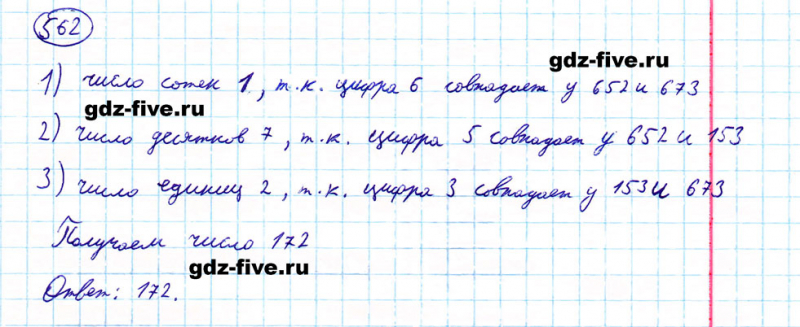 562
gdz-five.ru
1) число сотен 1, т.к. цифра 6 совпадает у 652 и 673
gdz-five.ru
2) число десятков 7, т.к. цифра 5 совпадает у 652 и 153
3) число единиц 2, т.к. цифра 3 совпадает у 153 и 673
Получаем число 172
gdz-five.ru
Ответ: 172.